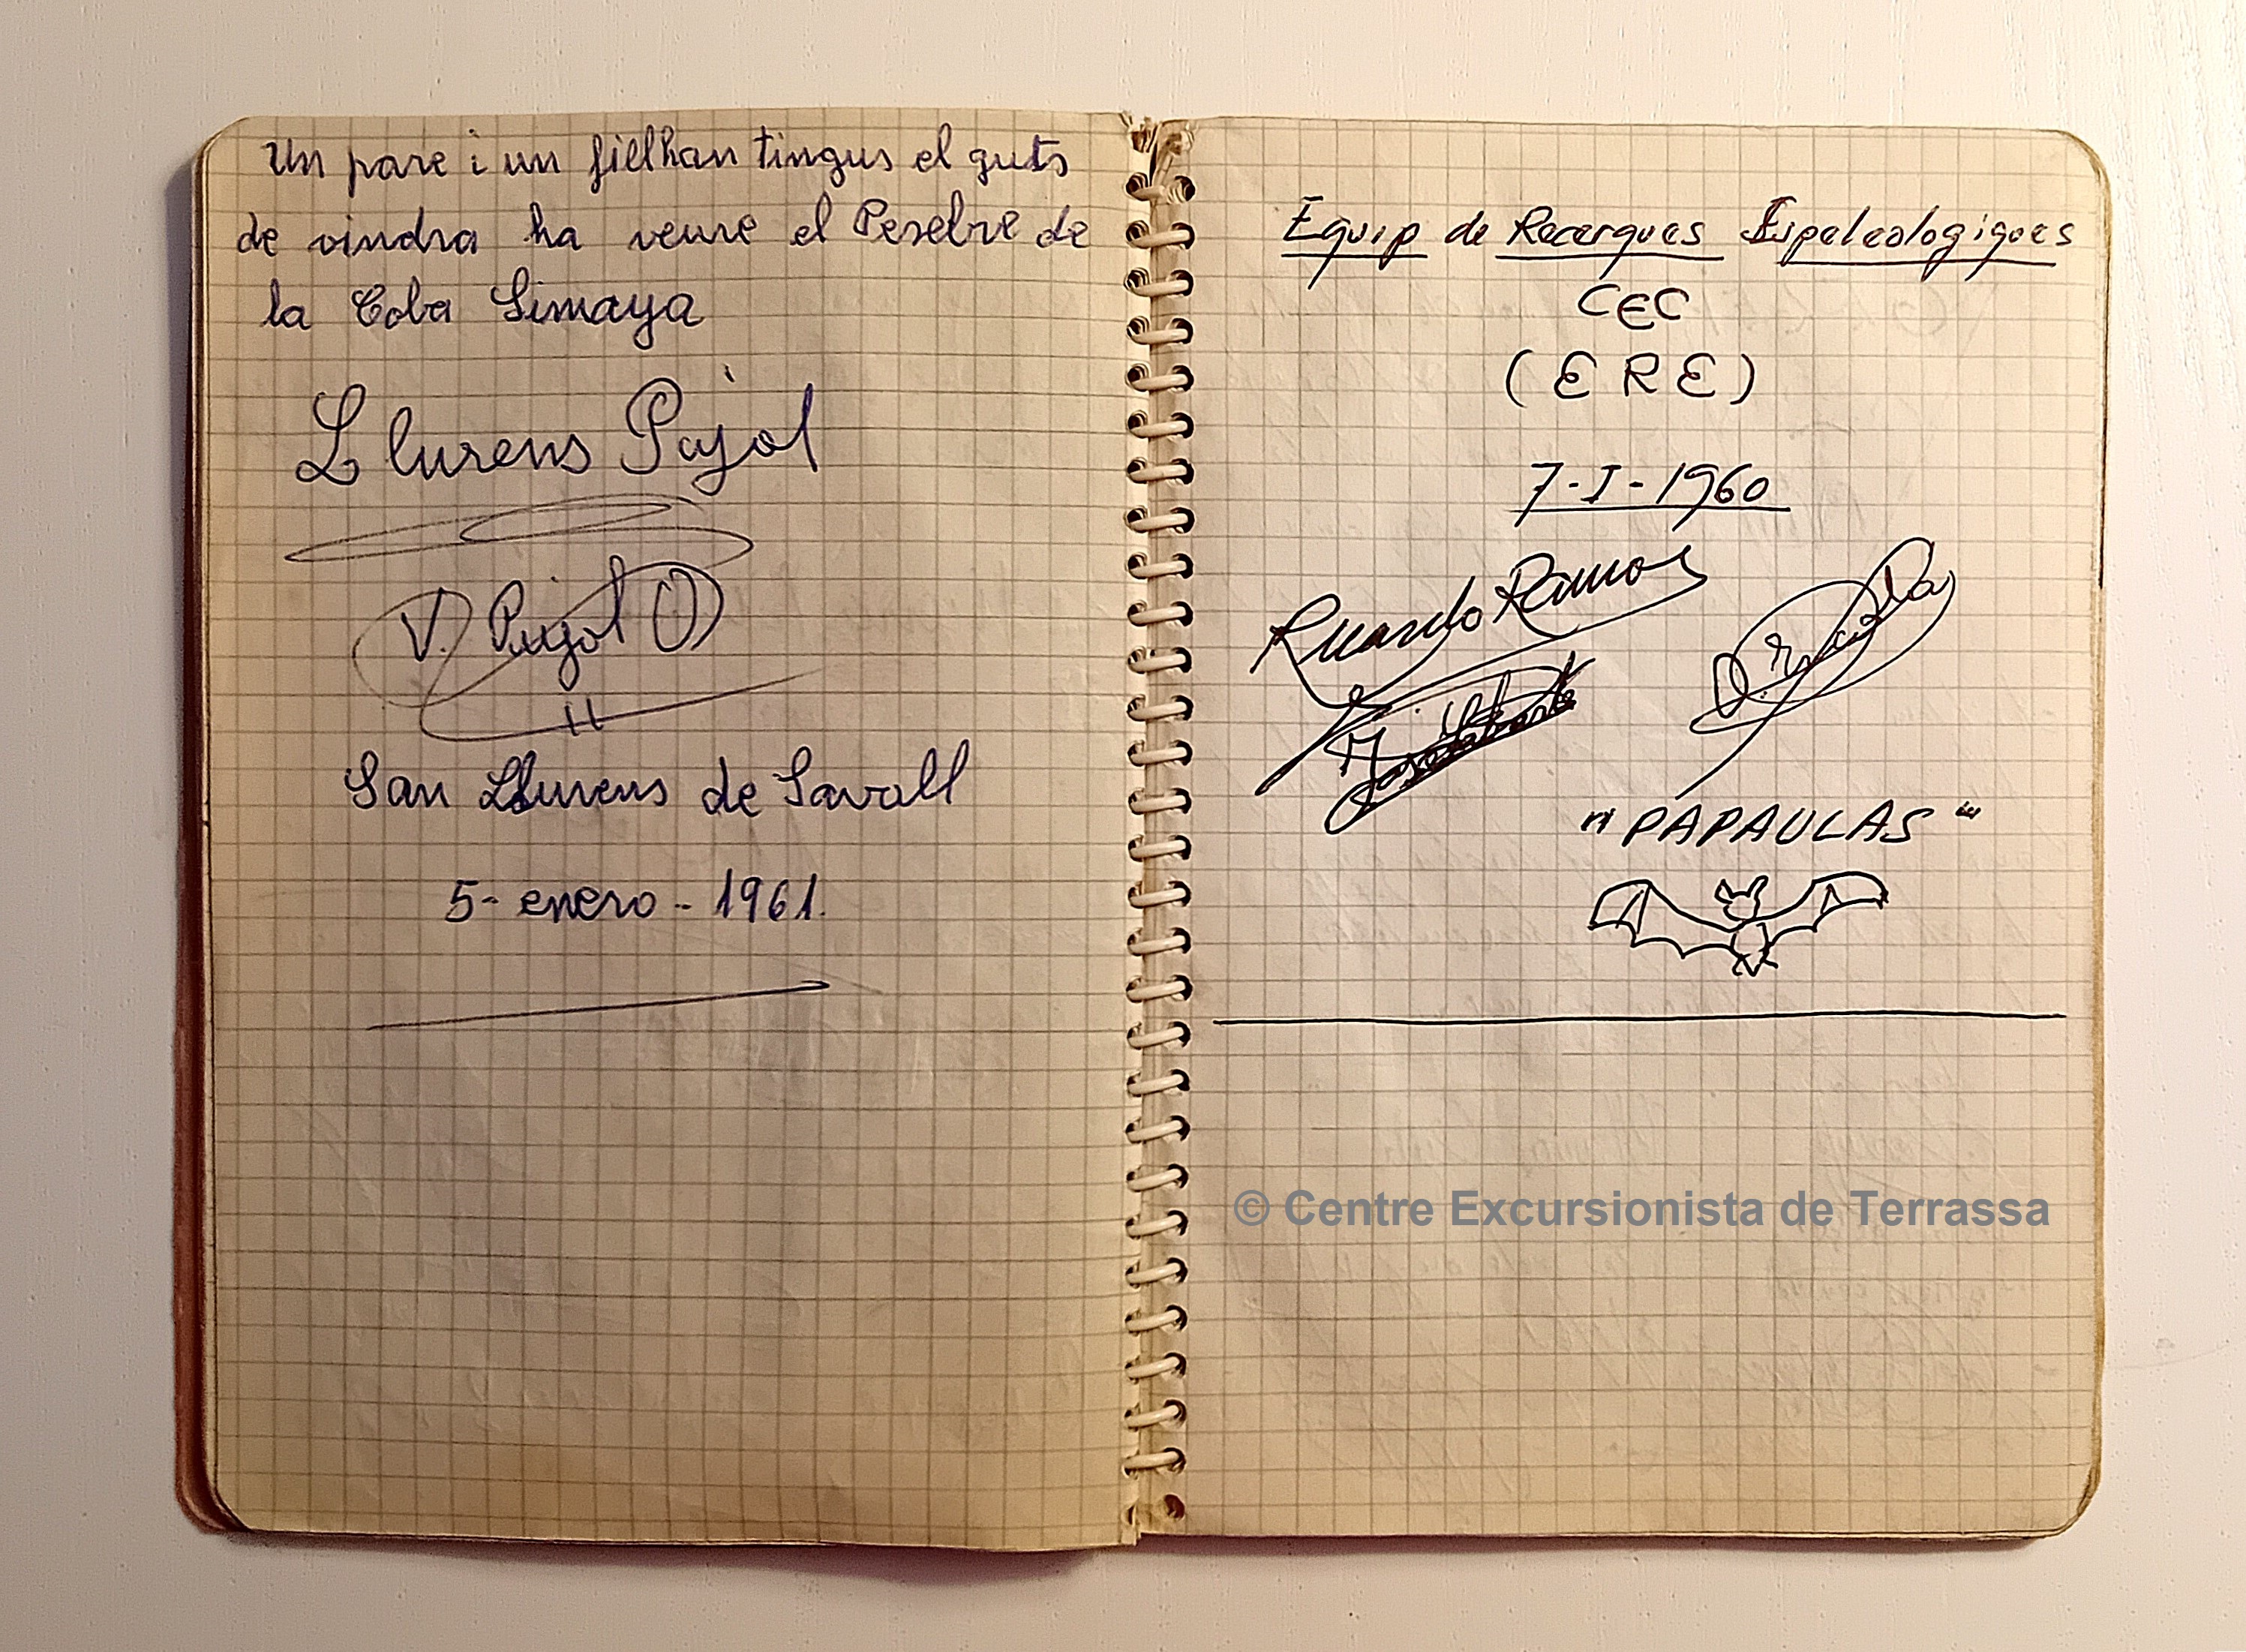 Un pare i un fillhan tingus el guts
de vindra ha veure el Pesebre de
la Coba Simaya
Llurens Pujol
V. Pujol O
San Llurens de Savall
5- enero - 1961.
Equip de Recerques Espeleologiques
CEC
(ERE)
7-I-1960
Ricardo Ramos
"PAPAULAS"
© Centre Excursionista de Terrassa